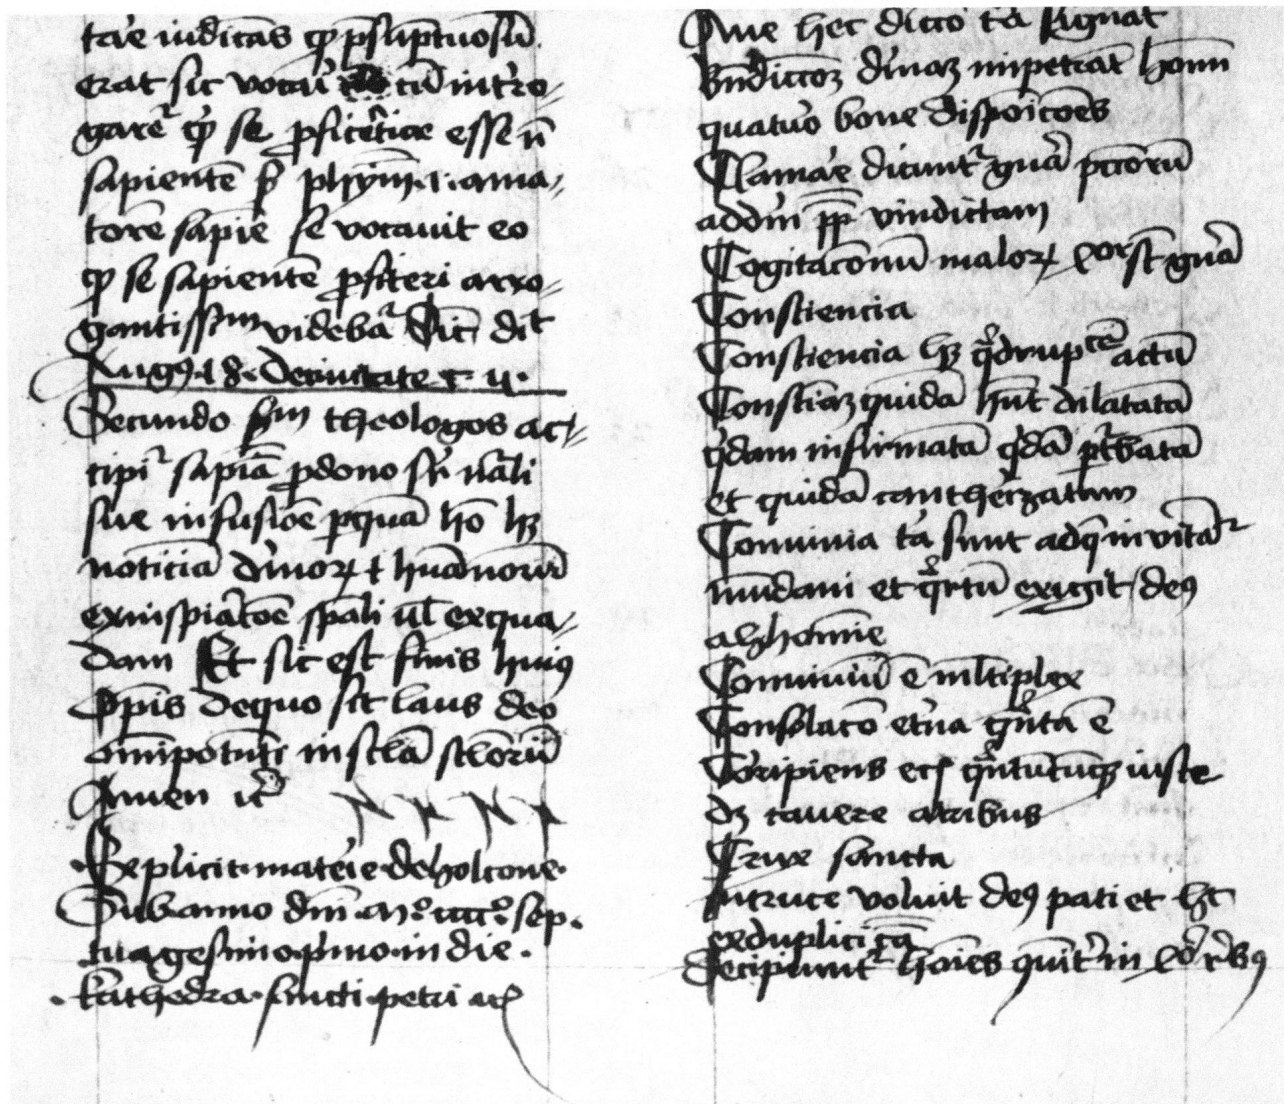 tare iudicās qp̄ p̄su̅ptuosū
erat sic vocari cū int̓ro⸗
garet̓ se p̄ficēt̓ esse n̄
sapientē ph̄ym .i. ama⸗
torē sapiē se vocauit eo
qp̄ se sapientē p̄fiteri arro⸗
gantissm̄ videbat̓ Sic dic̄t
Augꝰ 18 de ciuitate c. ii.
Secundo scd̄m theologos ac⸗
cipit̓ sapīa ꝓ dono sp̄ nāli
siue infusiōe per quā hō hꝫ
noticiā diuīoꝝ et hūanorū
ex inspirac̄oe sp̄ali ul̓ ex qua⸗
dam Et sic est finis huiꝰ
op̄is de quo sit laus deo
om̄ipotenti in sc̄la sc̄lorū
Amen
Explicit materie de holcone
Sub anno dn̄i mº ccccº sep.
tuagesimo primo in die
kathedra sancti petri
Aue hec dicc̄o tā signat
bn̄diccōꝫ diuīaꝫ impetrat hom̄
quatuor bone disposic̄oes
Clamare dicunt̓ gn̄a pcc̄orū
ad dn̄m pp̄ vindictam
Cogitac̄onū maloꝝ
Consciencia
Consciencia hꝫ q̄drupcē actū
Consciaꝫ quidā hn̄t dilatatā
q̄dam infirmatā q̄dā pt̓batā
et quidā cautherizatam
Conuiuia tā sunt ad q̄ inuitāt̓
mūdani et q̄rtū exigit deꝰ
ab hoīe
Conuiuiū ē ml̄tiplex
Consolac̄o et̓na ē
Corripiens
dꝫ cauere a tribus
Crux sancta
In cruce voluit deꝰ pati et hͨ
ex duplici cā
Decipiunt̓ hoīes in reb̓ꝰ